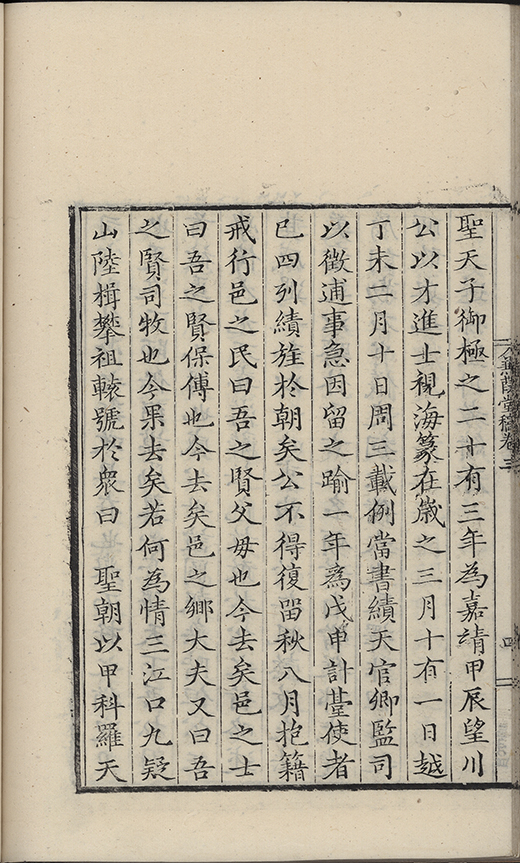 聖天子御極之二十有三年為嘉靖甲辰望川
公以才進士視海篆在歲之三月十有一日越
丁未二月十日周三載例當書績天官卿監司
以徵逋事急因留之踰一年為戊申計臺使者
已四列績旌於朝矣公不得復留秋八月抱籍
戒行邑之民曰吾之賢父母也今去矣邑之士
曰吾之賢保傅也今去矣邑之鄉大夫又曰吾
之賢司牧也今果去矣若何為情三江口九疑
山陸楫攀祖轅號於衆曰　聖朝以甲科羅天